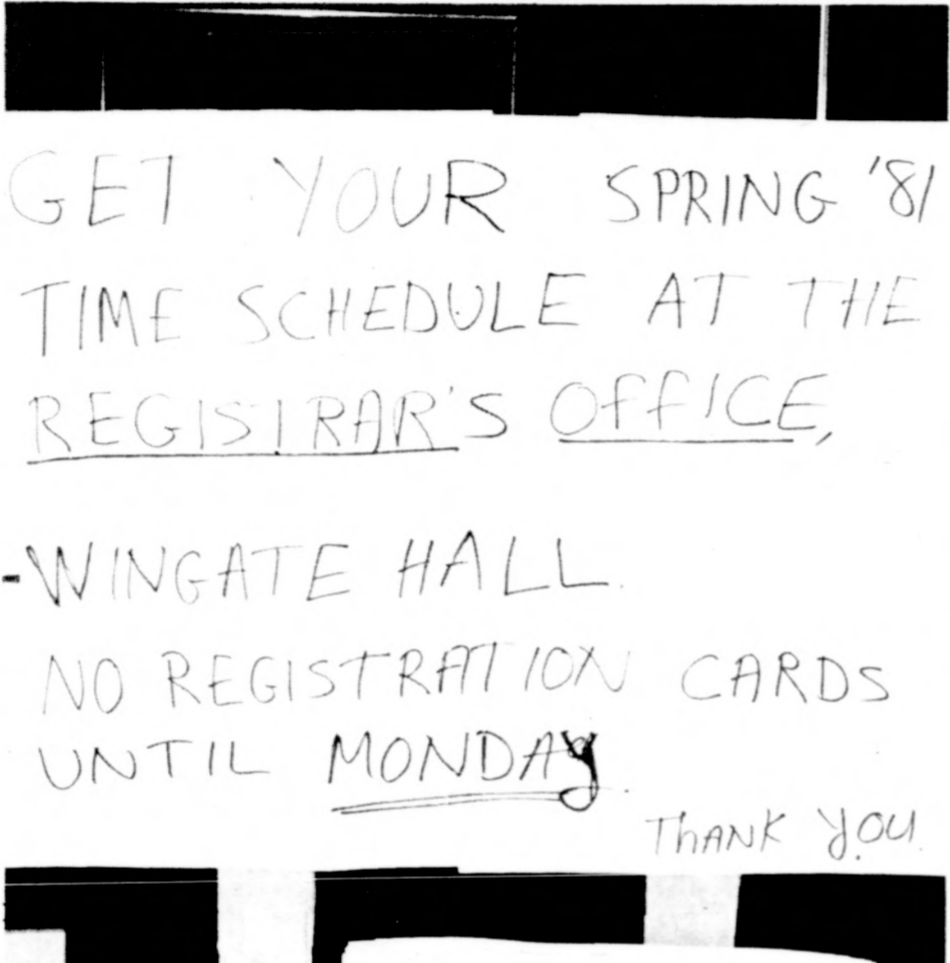 GET YOUR SPRING '81
TIME SCHEDULE AT THE
REGISTRAR'S OFFICE,
-WINGATE HALL.
NO REGISTRATION CARDS
UNTIL MONDAY.
THANK YOU.